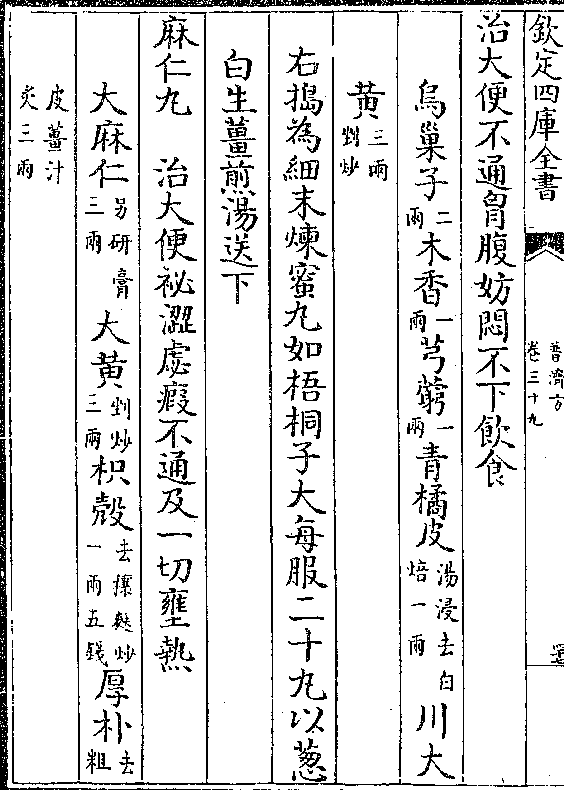 欽定四庫全書
普濟方
卷三十九
治大便不通胷腹妨悶不下飲食
烏巢子二兩木香一兩芎藭一兩青橘皮湯浸去白焙一兩川大
黄三兩剉炒
右搗為細末煉蜜丸如梧桐子大每服二十丸以葱
白生薑煎湯送下
麻仁丸 治大便祕澀虚瘕不通及一切壅熱
大麻仁另研膏三兩大黄剉炒三兩枳殻去穰麩炒一兩五錢厚朴去粗
皮薑汁炙三兩